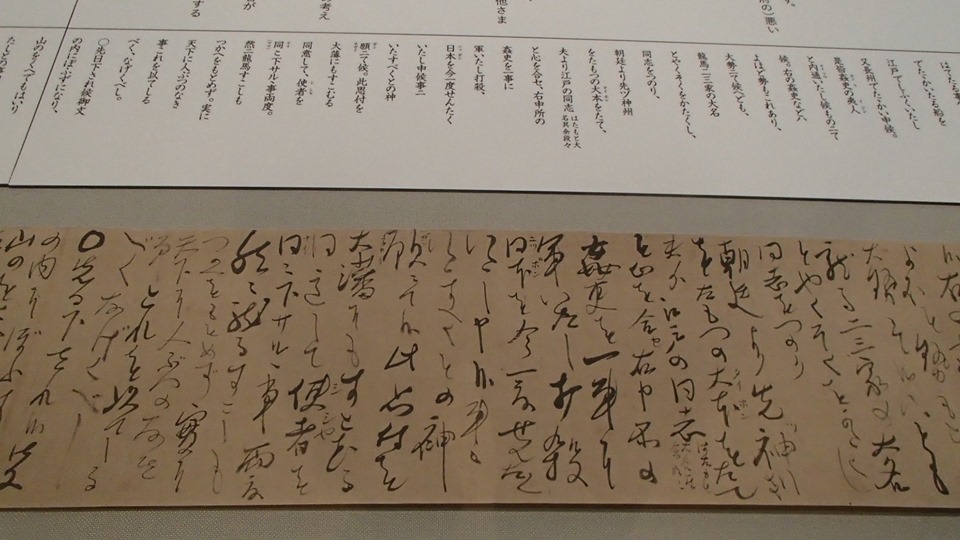 でたゝかいたる船を
江戸でしふくいたし
又長州でたゝかい申候。
是皆姦吏の夷人
と内通いたし候ものニて
候。右の姦吏などハ
よほど勢もこれあり、
大勢ニて候へども、
龍馬二三家の大名
とやくそくをかたくし、
同志をつのり、
朝廷より先ヅ神州
をたもつの大本をたて、
夫より江戸の同志 はたもと大名其余段々
と心を合セ、右申所の
姦吏を一事に
軍いたし打殺、
日本を今一度せんたく
いたし申候事ニ
いたすべくとの神
願ニて候。此思付を
大藩にもすこむる
同意して、使者を
内々下サルヽ事両度。
然ニ龍馬すこしも
つかへをもとめず。実に
天下に人ぶつのなき
事これを以てしる
べく、なげくべし。
○先日下され候御文
の内にぼふずになり、
山のをくへでもはいり
大勢ニて候へども
龍馬二三家の大名
とやくそくをかたくし
同志をつのり
朝廷より先ヅ神州
をたもつの大本をたて
夫より江戸の同志
と心を合セ右申所の
姦吏を一事に
軍いたし打殺
日本を今一度せんたく
いたし申候事ニ
いたすべくとの神
願ニて候此思付を
大藩にもすこむる
同意して使者を
内々下サルヽ事両度
然ニ龍馬すこしも
つかへをもとめず実に
天下に人ぶつのなき
事これを以てしる
べくなげくべし
○先日下され候御文
の内にぼふずになり